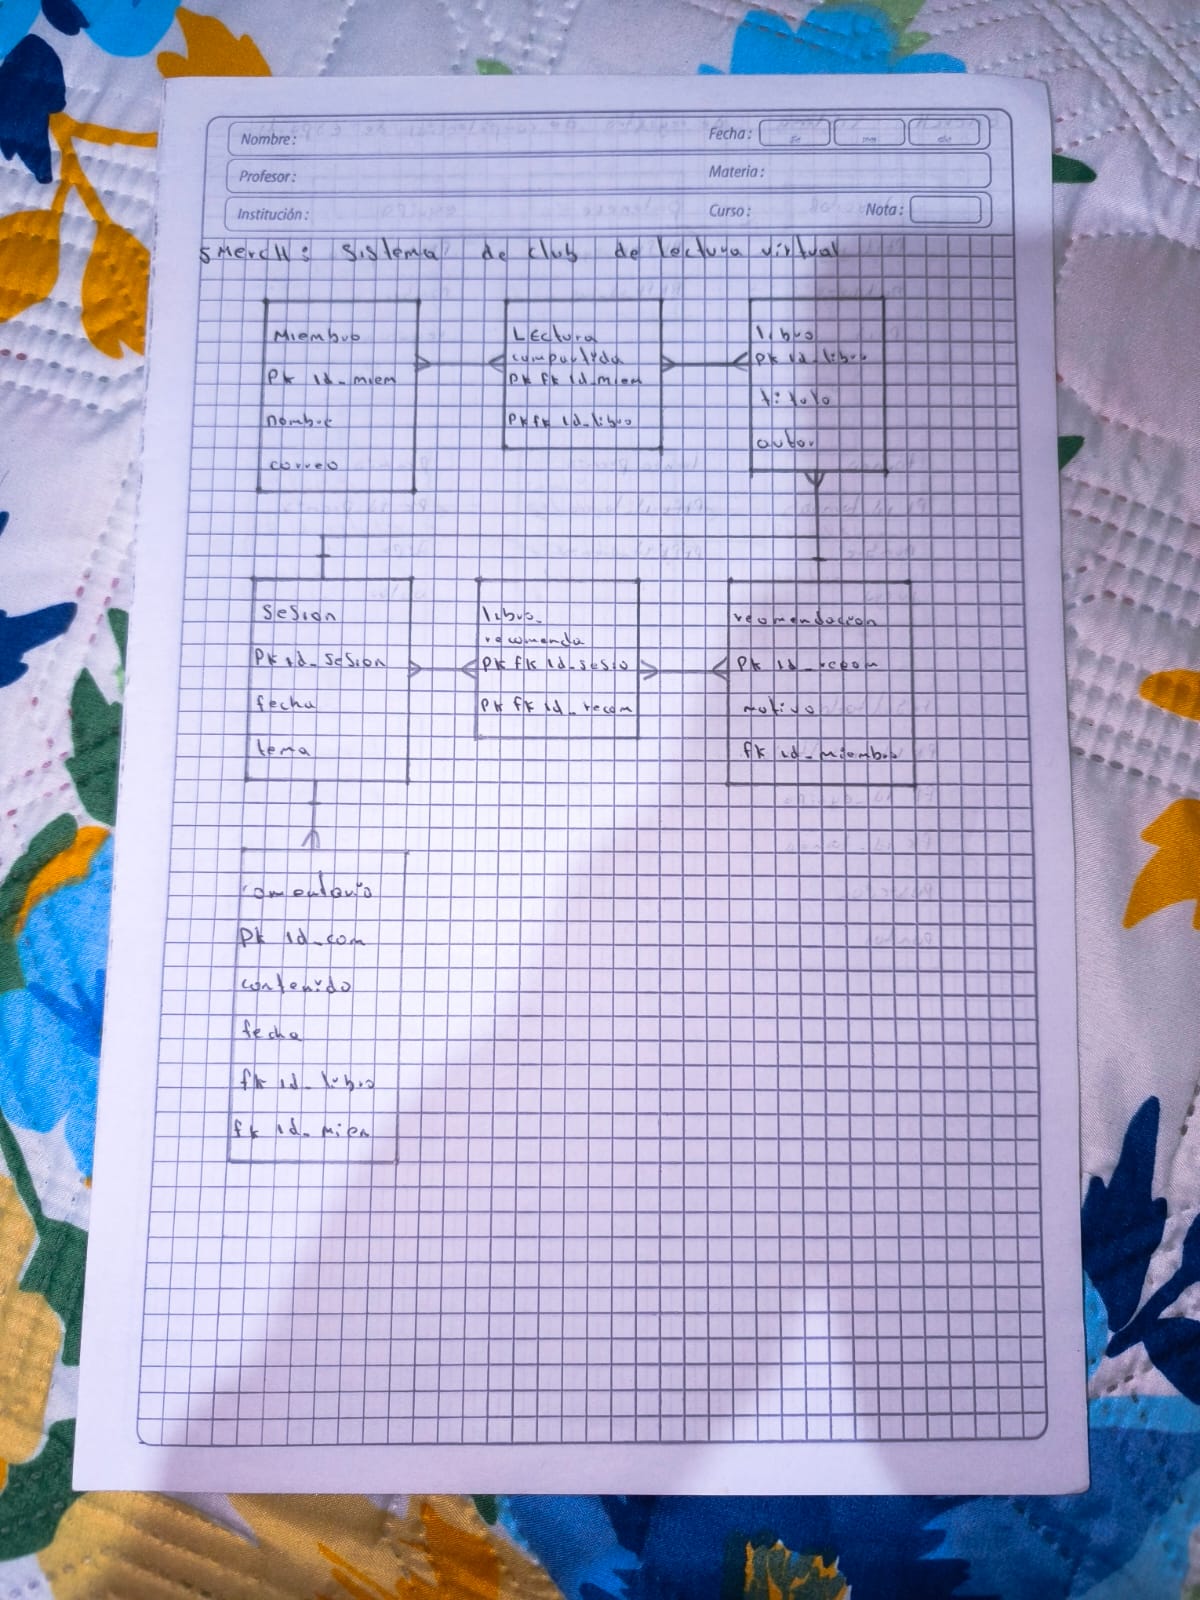 Nombre:
Fecha:
Profesor:
Materia:
Institución:
Curso:
Nota:
5 MercH: Sistema de club de lectura virtual
Miembro
Pk id_miem
nombre
correo
LEctura
compartida
Pk fk id_miem
Pk fk id_libro
libro
Pk id_libro
titulo
autor
Sesion
Pk id_Sesion
fecha
tema
libro_
recomenda
Pk fk id_sesio
Pk fk id_recom
recomendacion
Pk id_recom
motivo
fk id_miembro
comentario
Pk id_com
contenido
fecha
fk id_libro
fk id_miem